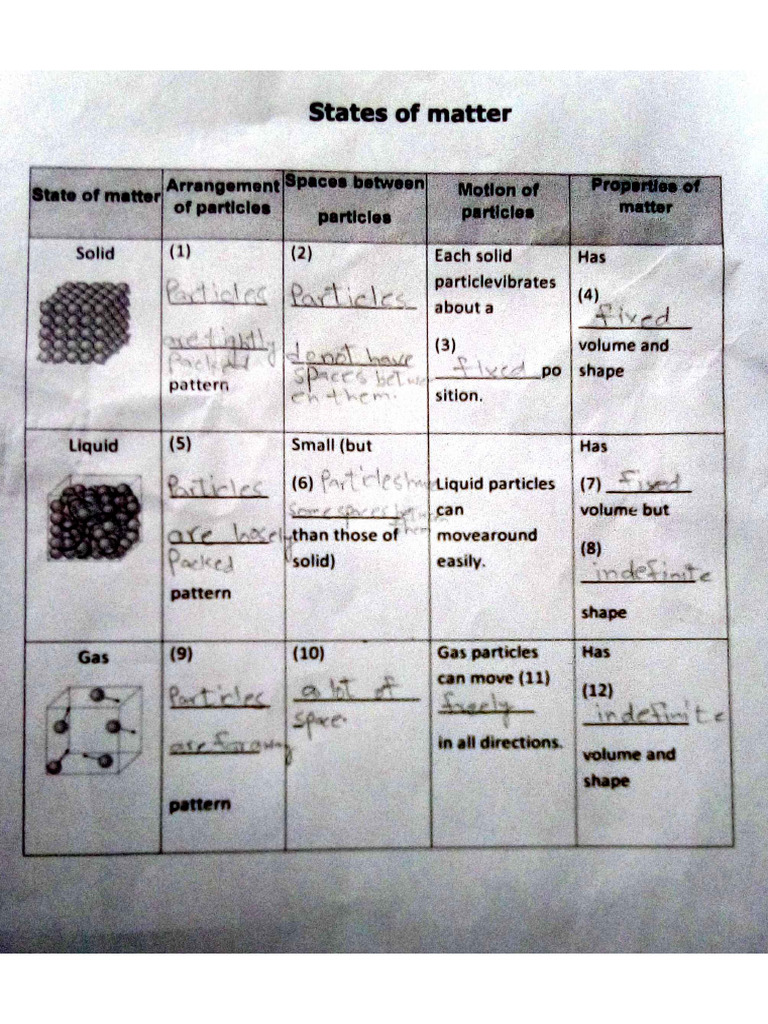 States of matter
State of matter
Arrangement
of particles
Spaces between
particles
Motion of
particles
Properties of
matter
Solid
(1)
Particles
are tightly
Packed
pattern
(2)
Particles
do not have
spaces betwe
en them.
Each solid
particlevibrates
about a
(3)
fixed po
sition.
Has
(4)
fixed
volume and
shape
Liquid
(5)
Particles
are losely
Packed
pattern
Small (but
(6) Particles have
Some spaces between
them
than those of
solid)
Liquid particles
can
movearound
easily.
Has
(7) fixed
volume but
(8)
indefinite
shape
Gas
(9)
Particles
are far away
pattern
(10)
a lot of
space.
Gas particles
can move (11)
freely
in all directions.
Has
(12)
indefinite
volume and
shape